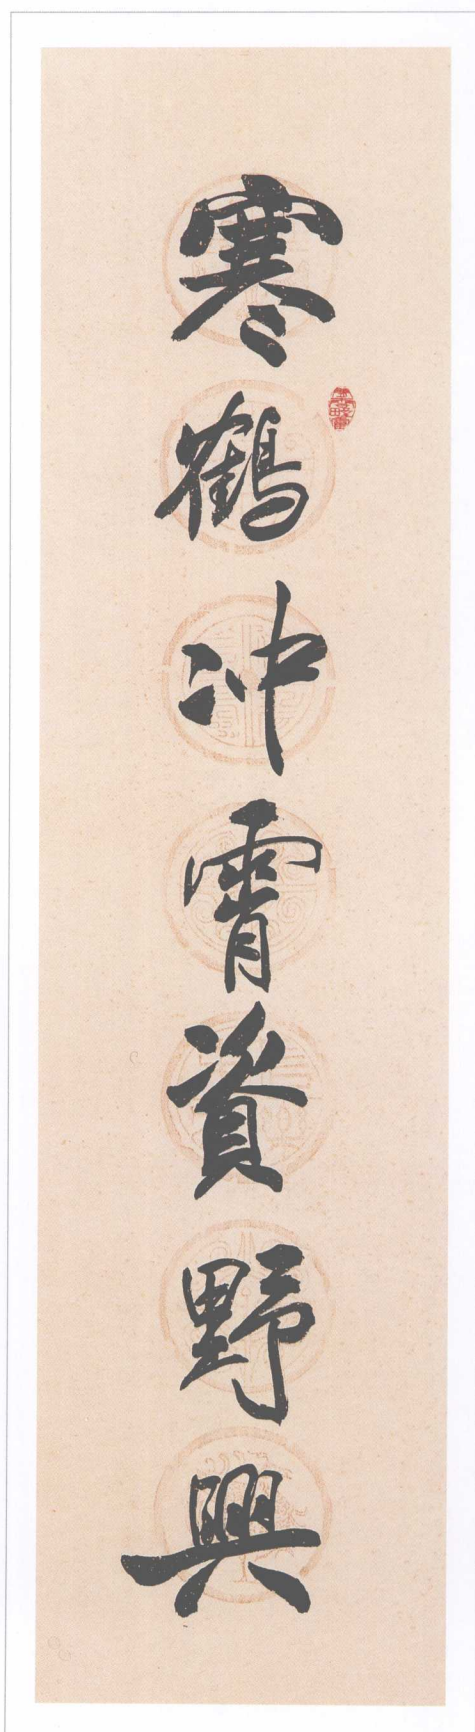 寒鶴冲霄資野興